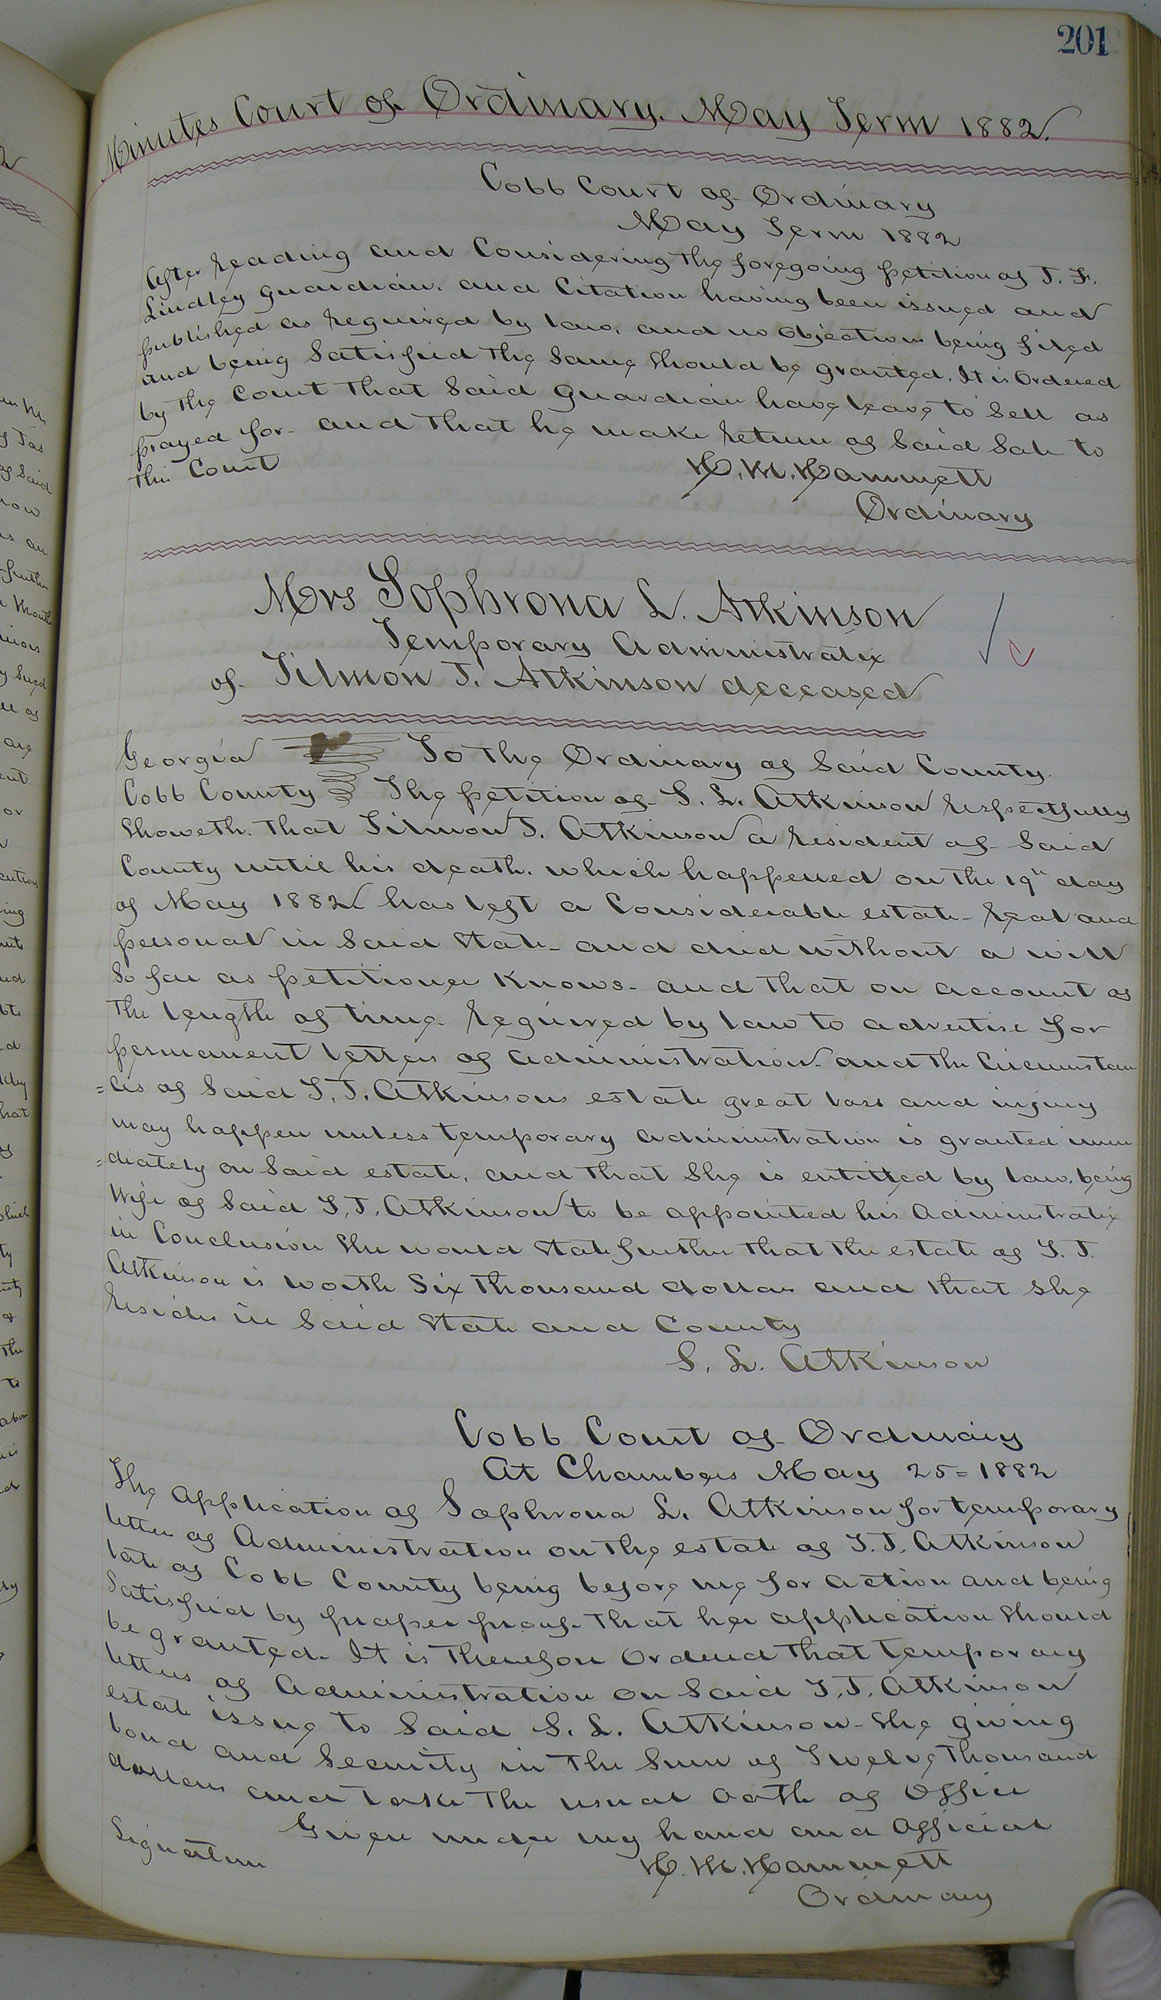 201
Minutes Court of Ordinary. May Term 1882.
Cobb Court of Ordinary
May Term 1882
After reading and Considering the foregoing petition of J. F.
Lindley guardian. and Citation having been issued and
published as required by law, and no objection being filed
and being Satisfied the Same Should be granted. It is Ordered
by the Court that Said Guardian have leave to Sell as
prayed for - and that he make return of Said Sale to
this Court
H. M. Hammett
Ordinary
Mrs Sophrona L. Atkinson
Temporary Administratix
of Tilmon T. Atkinson deceased
Georgia To the Ordinary of Said County.
Cobb County The petition of S. L. Atkinson Respectfully
Showeth. that Tilmon T. Atkinson a resident of Said
County until his death. which happened on the 19" day
of May 1882 has left a Considerable estate - real and
personal in Said State - and died without a will
So far as petitioner Knows - and that on account of
the length of time required by law to advertise for
permanent letters of administration and the Circumstan
=ces of Said T. T. Atkinsons estate great loss and injury
may happen unless temporary administration is granted imm
=diately on Said estate, and that She is entitled by law, being
Wife of Said T. T. Atkinson to be appointed his Administratix
in Conclusion She would State further that the estate of T. T.
Atkinson is worth Six thousand dollars and that She
resides in Said State and County
S. L. Atkinson
Cobb Court of Ordinary
At Chambers May 25= 1882
The application of Sophrona L. Atkinson for temporary
letters of Administration on the estate of T. T. Atkinson
late of Cobb County being before me for action and being
Satisfied by proper proof that her application Should
be granted. It is Therefore Ordered that temporary
letters of Administration on Said T. T. Atkinson
estate issue to Said S. L. Atkinson - She giving
bond and Security in the Sum of Twelve Thousand
dollars and take the usual oath of Office
Given under my hand and official
Signature
H. M. Hammett
Ordinary